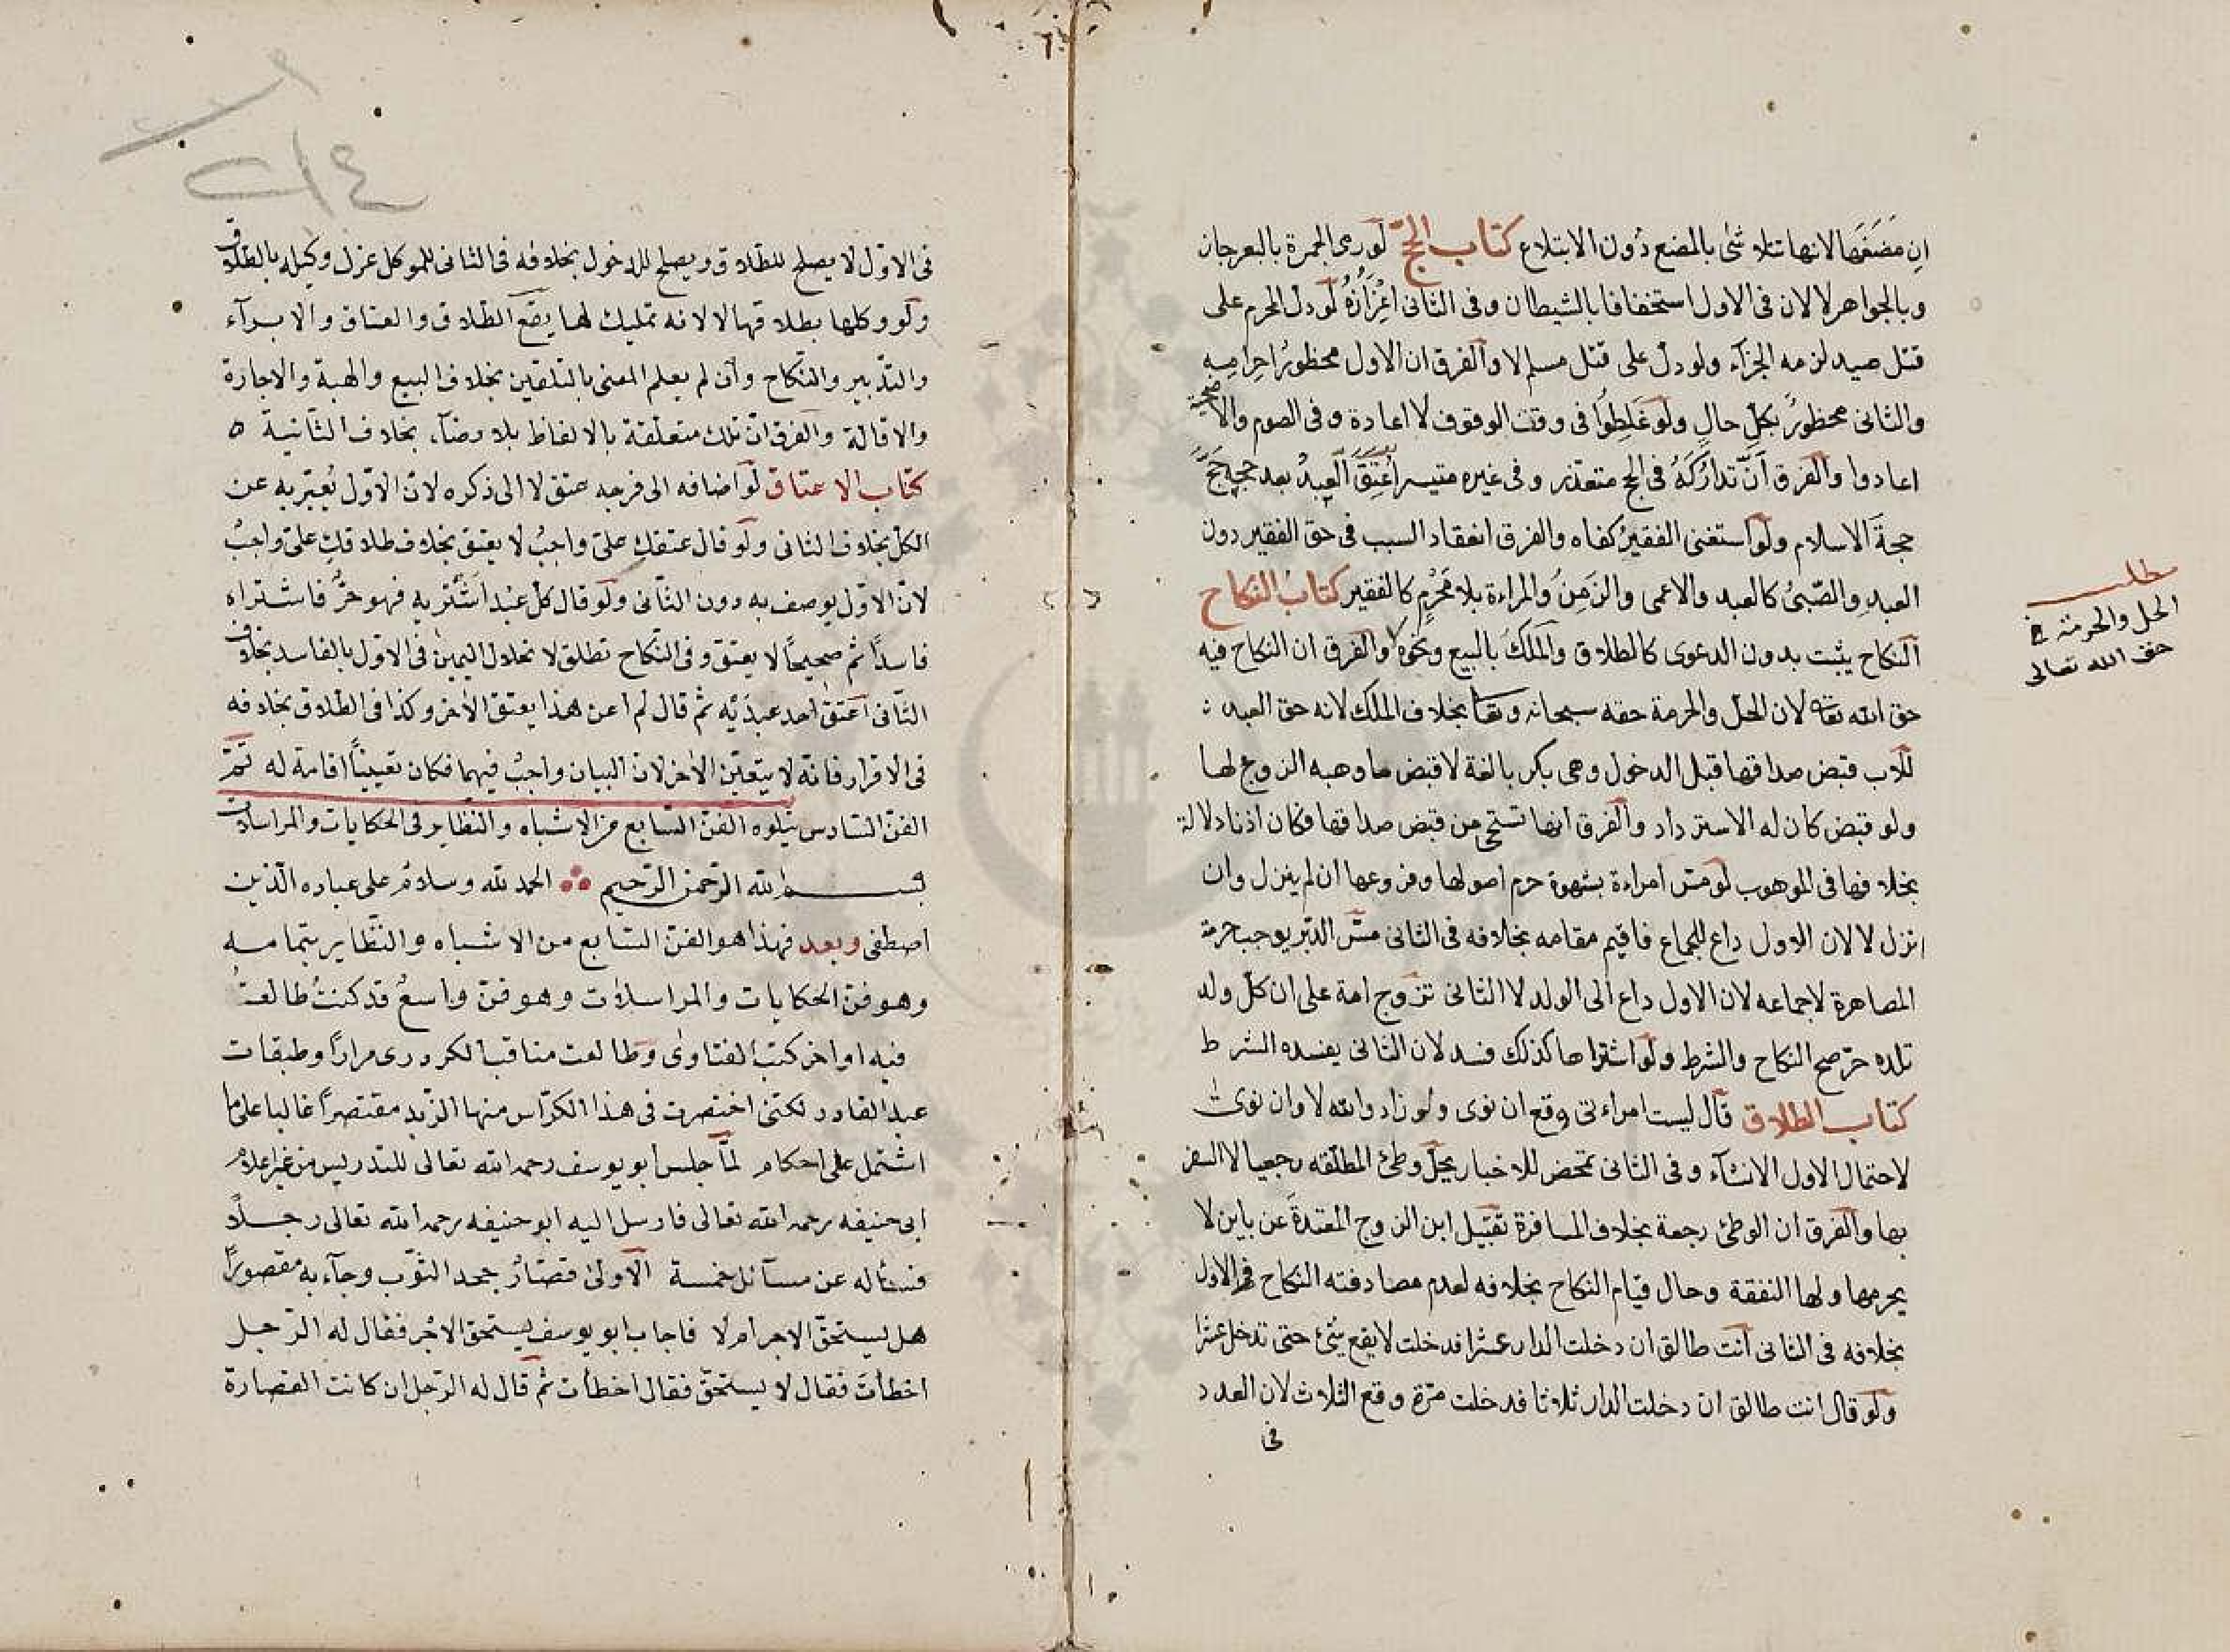 ان مضغها لانها تتلاشى بالمضغ دون الابتلاع كتاب الحج لو رمى الجمرة بالبعر جاز
وبالجواهر لا لان فى الاول استخفافا بالشيطان وفى الثانى اعزازه لو دل المحرم على
قتل صيد لزمه الجزآء ولو دل على قتل مسلم لا والفرق ان الاول محظور احرامه
والثانى محظور بكل حال ولو غلطوا فى وقت الوقوف لا اعادة وفى الصوم والاضحية
اعادوا والفرق أن تداركه فى الحج متعذر وفى غيره متيسر أعتق العبد بعد حجه حج
حجة الاسلام ولو استغنى الفقير كفاه والفرق انعقاد السبب فى حق الفقير دون
العبد والصبى كالعبد والاعمى والزمن والمراءة بلا محرم كالفقير كتاب النكاح
النكاح يثبت بدون الدعوى كالطلاق والملك بالبيع ونحوه لا والفرق ان النكاح فيه
حق الله تعا لان الحل والحرمة حقه سبحانه وتعا بخلاف الملك لانه حق العبد
للاب قبض صداقها قبل الدخول وهى بكر بالغة لا قبض ما وهبه الزوج لها
ولو قبض كان له الاسترداد والفرق انها تستحى من قبض صداقها فكان اذنا دلالة
بخلافها فى الموهوب لو مس امراءة بشهوة حرم اصولها وفروعها ان لم ينزل وان
انزل لا لان الاول داع للجماع فاقيم مقامه بخلافه فى الثانى مس الدبر يوجب حرمة
المصاهرة لا جماعه لان الاول داع الى الولد لا الثانى تزوج امة على ان كل ولد
تلده حر صح النكاح والشرط ولو اشتراها كذلك فسد لان الثانى يفسده الشرط
كتاب الطلاق قال ليست امراءتى وقع ان نوى ولو زاد والله لا وان نوى
لاحتمال الاول الانشآء وفى الثانى تمحض للاخبار يحل وطئ المطلقه رجعيا لا السفر
بها والفرق ان الوطئ رجعة بخلاف المسافرة تقبيل ابن الزوج المعتدة عن باين لا
يحرمها ولها النفقة وحال قيام النكاح بخلافه لعدم مصادفته النكاح فى الاول
بخلافه فى الثانى أنت طالق ان دخلت الدار عشرا فدخلت لا يقع شئ حتى تدخل عشرا
ولو قال انت طالق ان دخلت الدار ثلاثا فدخلت مرة وقع الثلاث لان العدد
فى
مطلب
الحل والحرمة فى
حق الله تعالى
فى الاول لا يصلح للطلاق ويصلح للدخول بخلافه فى الثانى للموكل عزل وكيله بالطلاق
ولو وكلها بطلاقها لا لانه تمليك لها يقع الطلاق والعتاق والابرآء
والتدبير والنكاح وأن لم يعلم المعنى بالتلقين بخلاف البيع والهبة والاجارة
والاقالة والفرق ان تلك متعلقة بالالفاظ بلا رضآء بخلاف الثانية ه
كتاب الاعتاق لو اضافه الى فرجه عتق لا الى ذكره لان الاول يعبر به عن
الكل بخلاف الثانى ولو قال عتقك على واجب لا يعتق بخلاف طلاقك على واجب
لان الاول يوصف به دون الثانى ولو قال كل عبد أشتريه فهو حر فاشتراه
فاسدا ثم صحيحا لا يعتق وفى النكاح تطلق لانحلال اليمين فى الاول بالفاسد بخلاف
الثانى أعتق احد عبديه ثم قال لم اعن هذا يعتق الاخر وكذا فى الطلاق بخلافه
فى الاقرار فانه لا يتعين الاخر لان البيان واجب فيهما فكان تعيينا اقامة له تم
الفن السادس يتلوه الفن السابع من الاشباه والنظاير فى الحكايات والمراسلات
بسم الله الرحمن الرحيم الحمد لله وسلام على عباده الذين
اصطفى وبعد فهذا هو الفن السابع من الاشباه والنظاير بتمامه
وهو فن الحكايات والمراسلات وهو فن واسع قد كنت طالعت
فيه اواخر كتب الفتاوى وطالعت مناقب الكردرى مرارا وطبقات
عبد القادر لكننى اختصرت فى هذا الكراس منها الزبد مقتصرا غالبا على ما
اشتمل على احكام لما جلس ابو يوسف رحمه الله تعالى للتدريس من غير اعلام
ابى حنيفه رحمه الله تعالى فارسل اليه ابو حنيفه رحمه الله تعالى رجلا
فسئاله عن مسآئل خمسة الاولى قصار جحد الثوب وجآء به مقصورا
هل يستحق الاجر ام لا فاجاب ابو يوسف يستحق الاجر فقال له الرجل
اخطأت فقال لا يستحق فقال اخطأت ثم قال له الرجل ان كانت القصارة